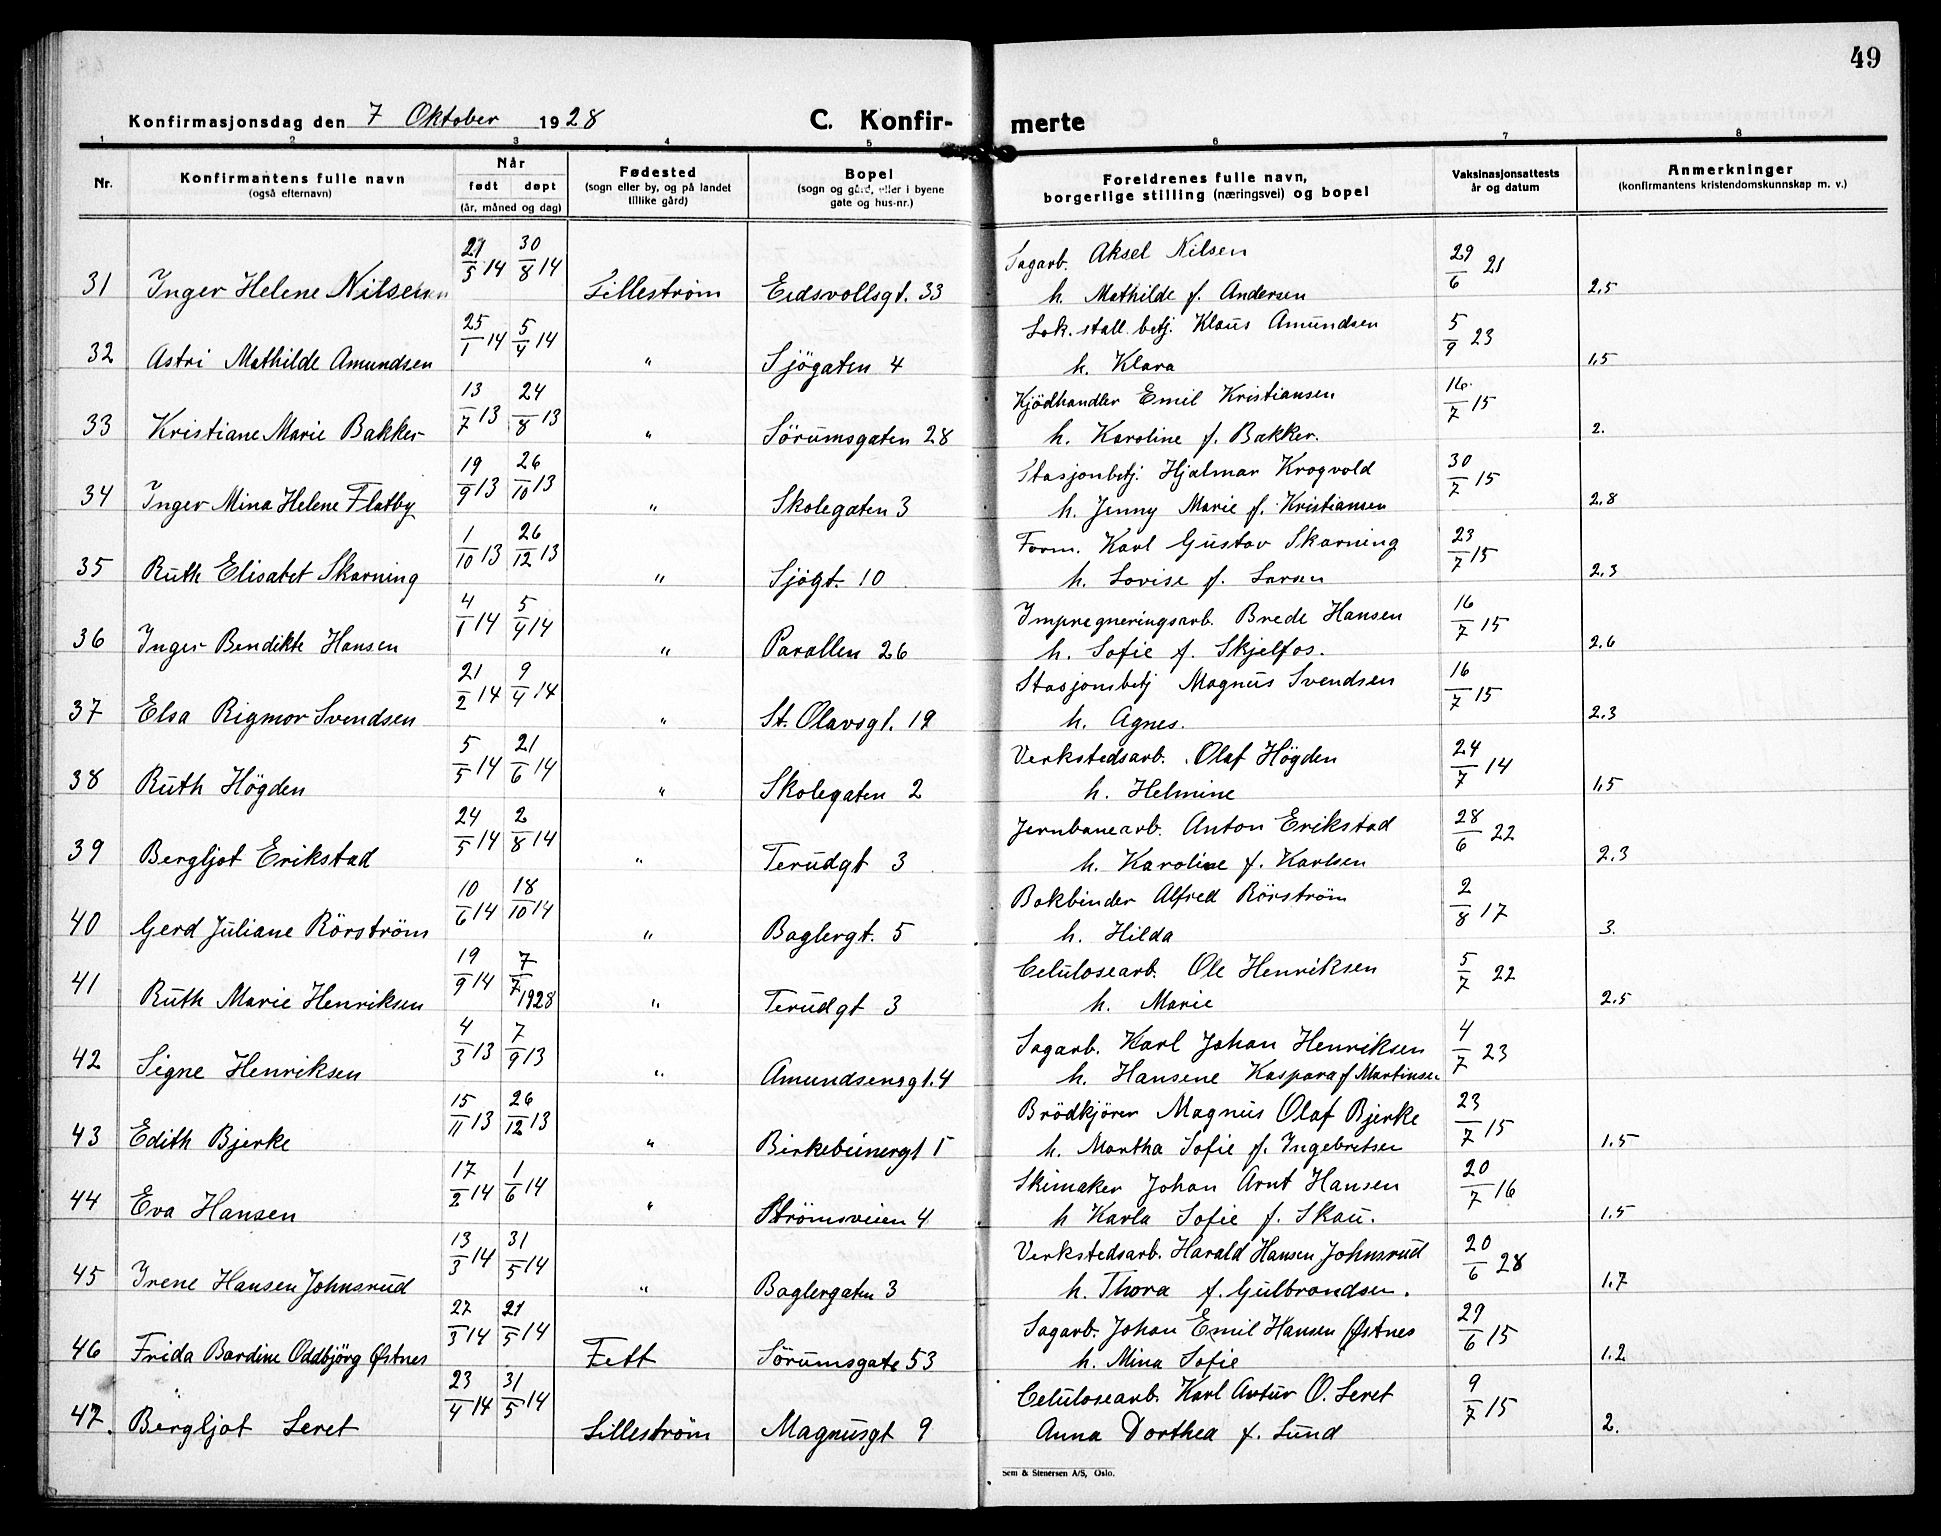 49
Konfirmasjonsdag den 7 Oktober 1928 C. Konfir- merte
1 2 3 4 5 6 7 8
Nr. Konfirmantens fulle navn (også efternavn) Når født døpt (år, måned og dag) Fødested (sogn eller by, og på landet tillike gård) Bopel (sogn og gård, eller i byene gate og hus-nr.) Foreldrenes fulle navn, borgerlige stilling (næringsvei) og bopel Vaksinasjonsattests år og datum Anmerkninger (konfirmantens kristendomskunnskap m. v.)
31 Inger Helene Nilsen 29/5 14 30/8 14 Lilleström Eidsvollsgt. 33 Sagarb. Aksel Nilsen 29/6 21 2.5
h. Mathilde f. Andersen
32 Astri Mathilde Amundsen 25/1 14 5/4 14 " Sjögaten 4 Lok. stall. betj. Klaus Amundsen 5/9 23 1,5
h. Klara
33 Kristiane Marie Bakker 13/7 13 24/8 13 " Sörumsgaten 28 Kjödhandler Emil Kristiansen 16/7 15 2.
h. Karoline f. Bakker.
34 Inger Mina Helene Flatby 19/9 13 26/10 13 " Skolegaten 3 Stasjonbetj. Hjalmar Krogvold 30/7 15 2,8
h. Jenny Marie f. Kristiansen
35 Ruth Elisabet Skarning 1/10 13 26/12 13 " Sjögt. 10 Form. Karl Gustav Skarning 23/7 15 2,3
h. Lovise f. Laran
36 Inger Bendikte Hansen 4/1 14 5/4 14 " Parallen 26 Impregneringsarb. Brede Hansen 16/7 15 2.6
h. Sofie f. Skjelfos.
37 Elsa Rigmor Svendsen 21/2 14 9/4 14 " St. Olavsgt. 19 Stasjonsbetj Magnus Svendsen 16/7 15 2.3
h. Agnes.
38 Ruth Högden 5/5 14 21/6 14 " Skolegaten 2 Verkstedsarb. Olaf Högden 24/7 14 1,5
h. Helmine
39 Bergljot Erikstad 24/5 14 2/8 14 " Terudgt 3 Jernbanearb. Anton Erikstad 28/6 22 2.3
h. Karoline f. Karlsen
40 Gerd Juliane Rörström 10/6 14 18/10 14 " Baglergt. 5 Bokbinder Alfred Rörström 2/8 17 3.
h. Hilda
41 Ruth Marie Henriksen 19/9 14 7/7 1928 " Terudgt 3 Celulosearb. Ole Henriksen 5/7 22 2.5
h. Marie
42 Signe Henriksen 4/3 13 7/9 13 " Amundsensgt. 4 Sagarb. Karl Johan Henriksen 4/7 23
h. Hansene Kaspara f Martinsen
43 Edith Bjerke 15/11 13 26/12 13 " Birkebeinergt 1 Brödkjörer Magnus Olaf Bjerke 23/7 15 1.5
h. Martha Sofie f. Ingebretsen
44 Eva Hansen 17/2 14 1/6 14 " Strömsveien 4 Skimaker Johan Arnt Hansen 20/7 16 1.5
h Karla Sofie f. Skau.
45 Irene Hansen Johnsrud 13/3 14 31/5 14 " Baglergaten 3 Verkstedsarb. Harald Hansen Johnsrud 20/6 28 1.7
h. Thora f. Gulbrandsen.
46 Frida Bardine Oddbjörg Østnes 27/3 14 21/5 14 Fett Sörumsgate 53 Sagarb. Johan Emil Hansen Østnes 29/6 15 1.2
h. Mina Sofie
47. Bergljot Leret 23/4 14 31/5 14 Lilleström Magnusgt 9 Celulosearb. Karl Artur O. Leret 9/7 15 2.
Anna Dorthea f. Lund
Sem & Stenersen A/S, Oslo.